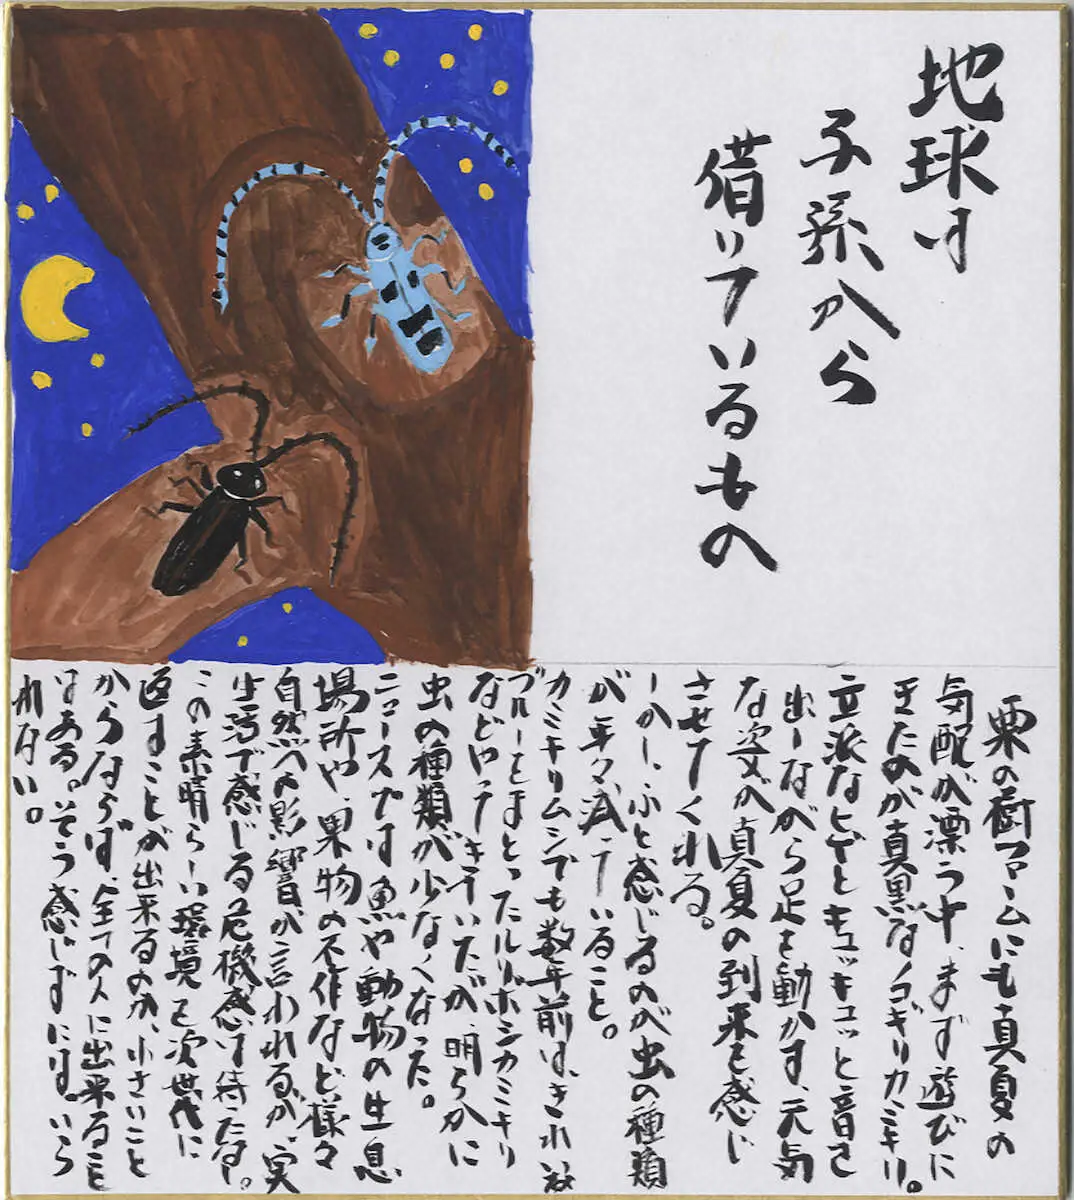 地球は
子孫から
借りているもの
栗の樹ファームにも真夏の
気配が漂う中、まず遊びに
きたのが真黒なノコギリカミキリ。
立派なヒゲとキュッキュッと音を
出しながら足を動かす、元気
な姿が真夏の到来を感じ
させてくれる。
しかし、ふと感じるのが虫の種類
が年々減っていること。
カミキリムシでも数年前は、きれいな
ブルーをまとったルリボシカミキリ
などやってきていたが、明らかに
虫の種類が少なくなった。
ニュースでは魚や動物の生息
場所や、果物の不作など様々
自然への影響が言われるが、実
生活で感じる危機感は待ったなし。
この素晴らしい環境を次世代に
返すことが出来るのか、小さいこと
からならば、全ての人に出来ること
はある。そう感じずには、いら
れない。